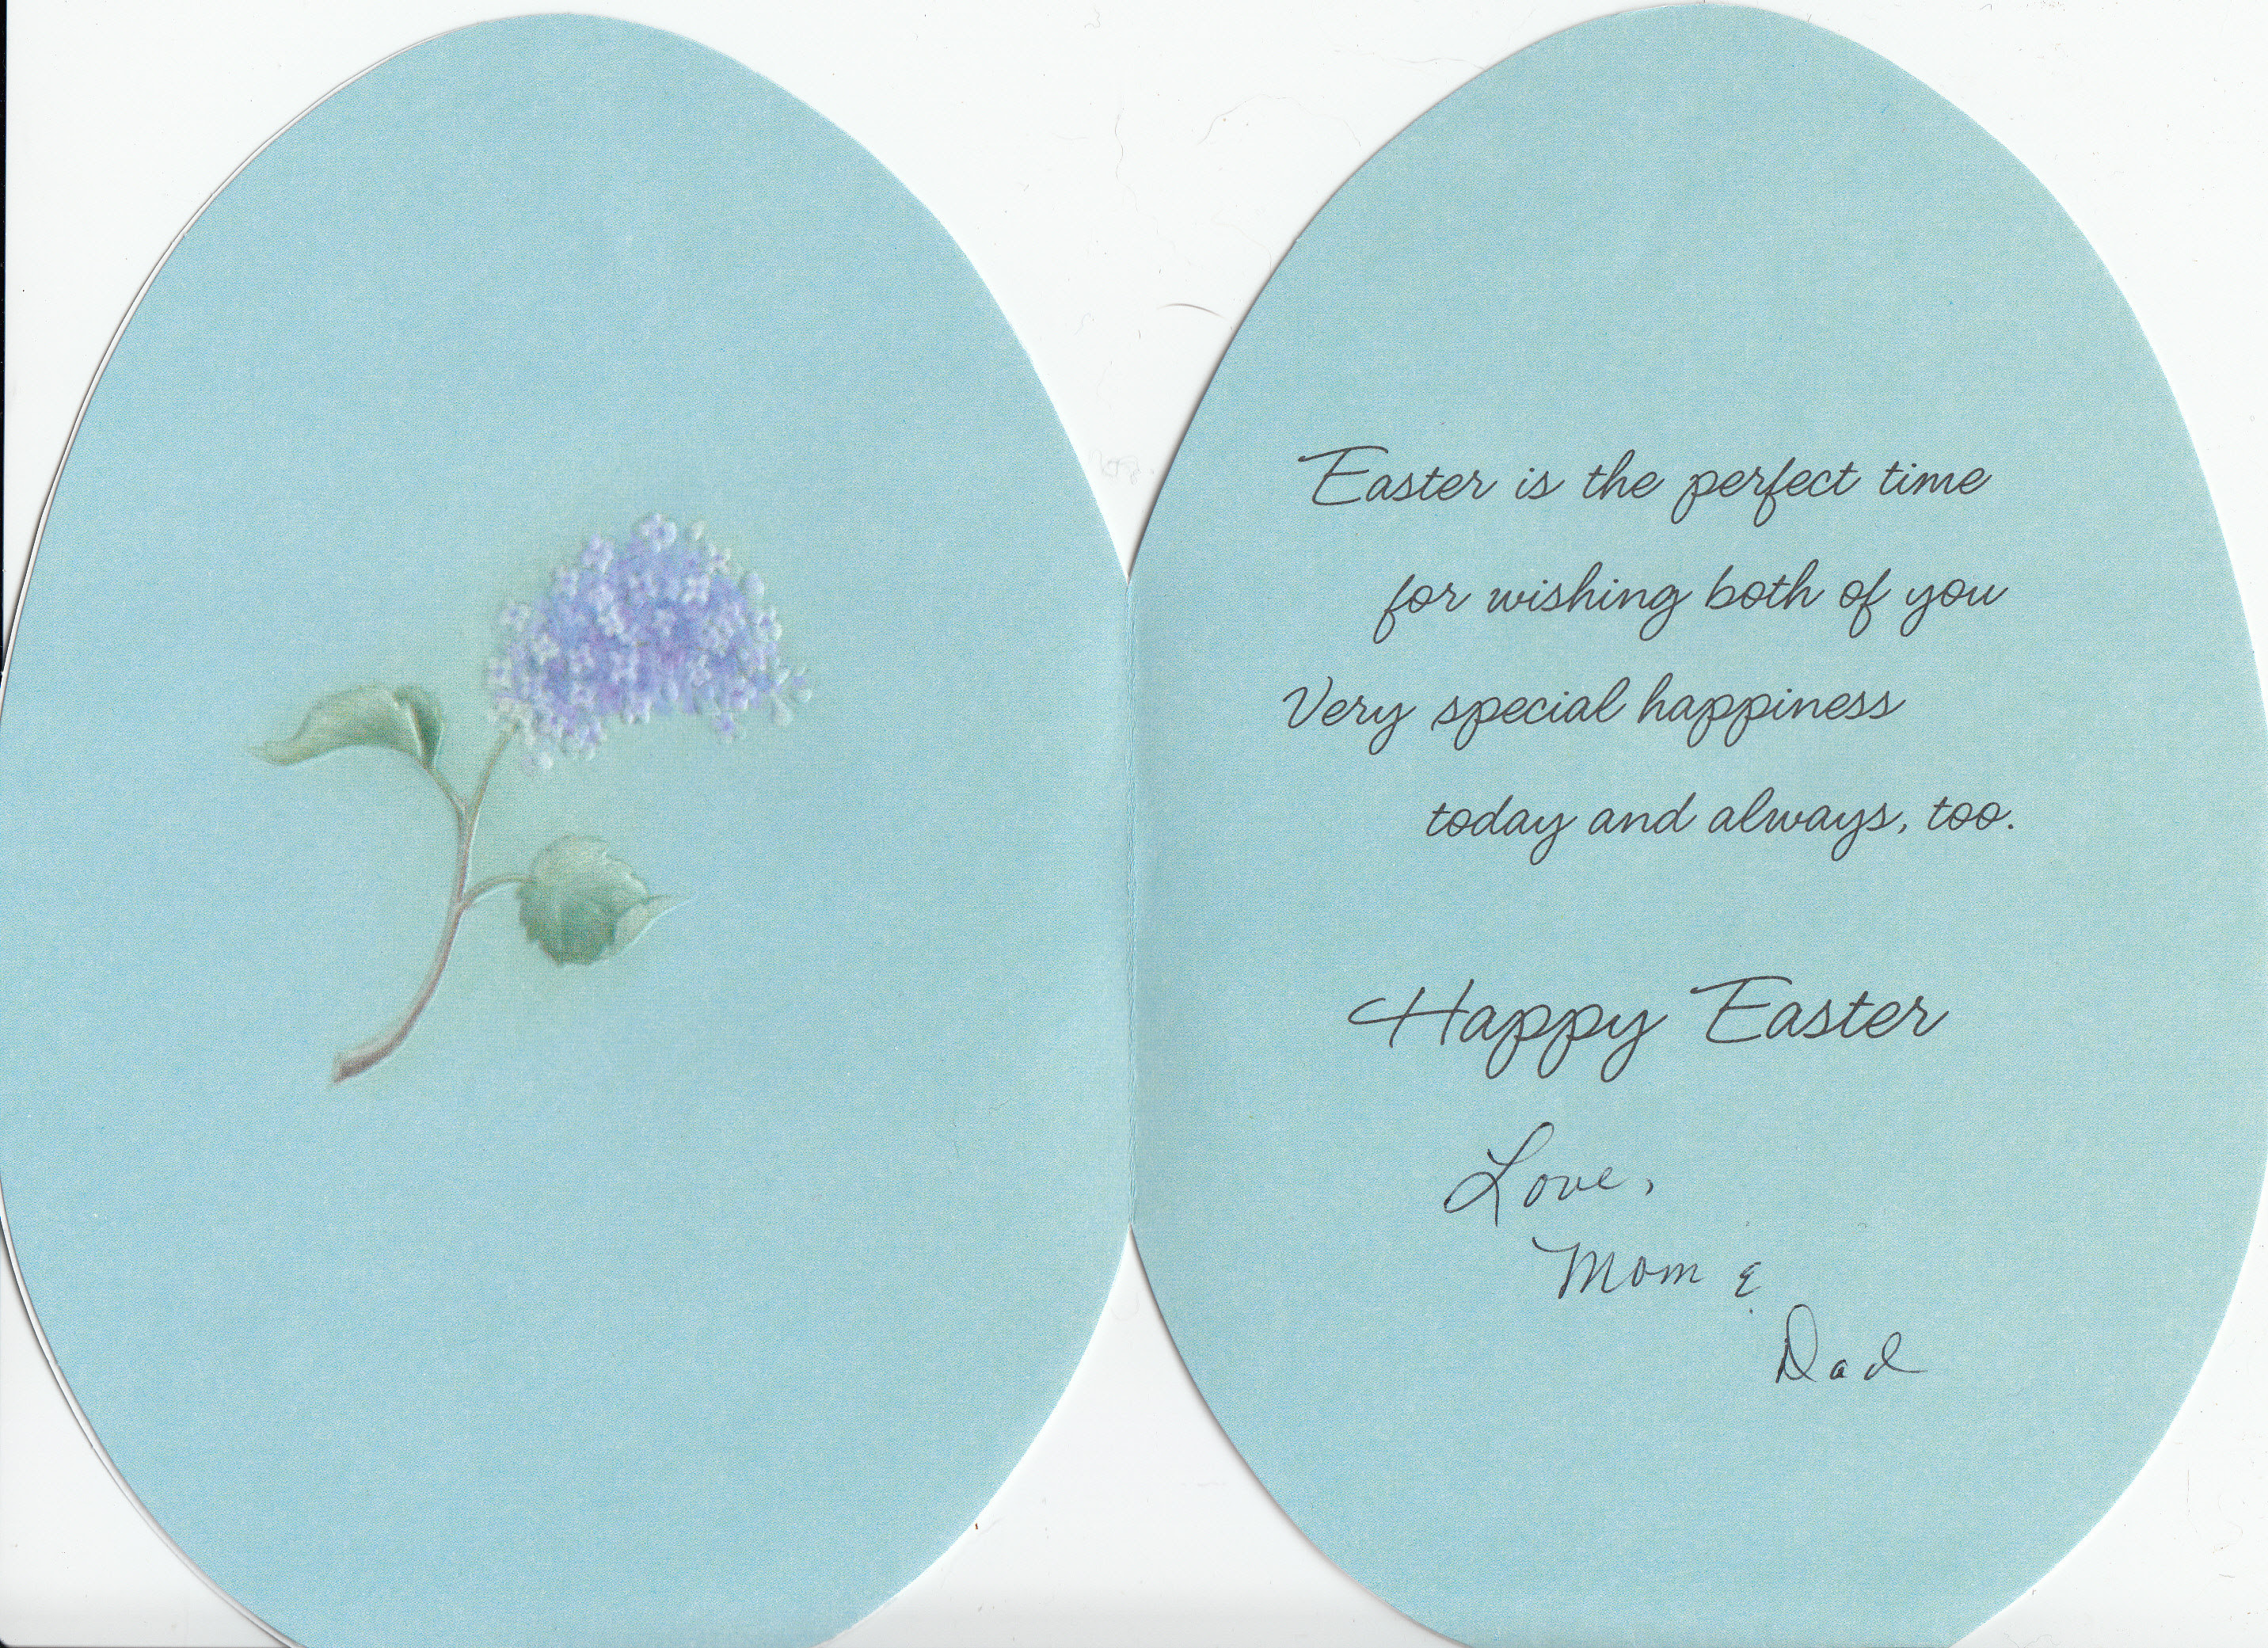 Easter is the perfect time
for wishing both of you
Very special happiness
today and always, too.
Happy Easter
Love,
Mom &
Dad